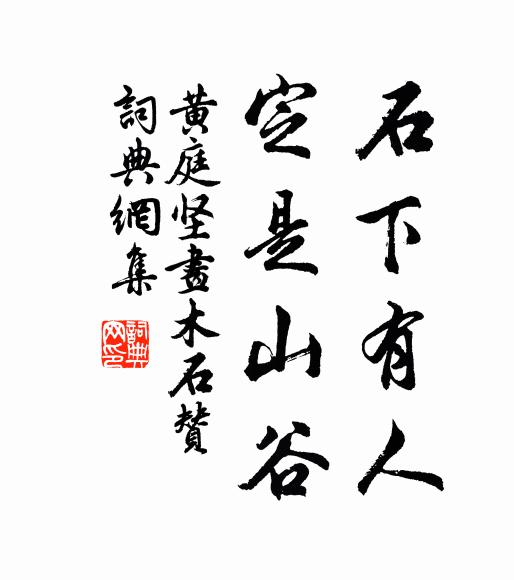 石下有人
定是山谷
黄庭坚畫木石贊
詞典網集
詞典網印